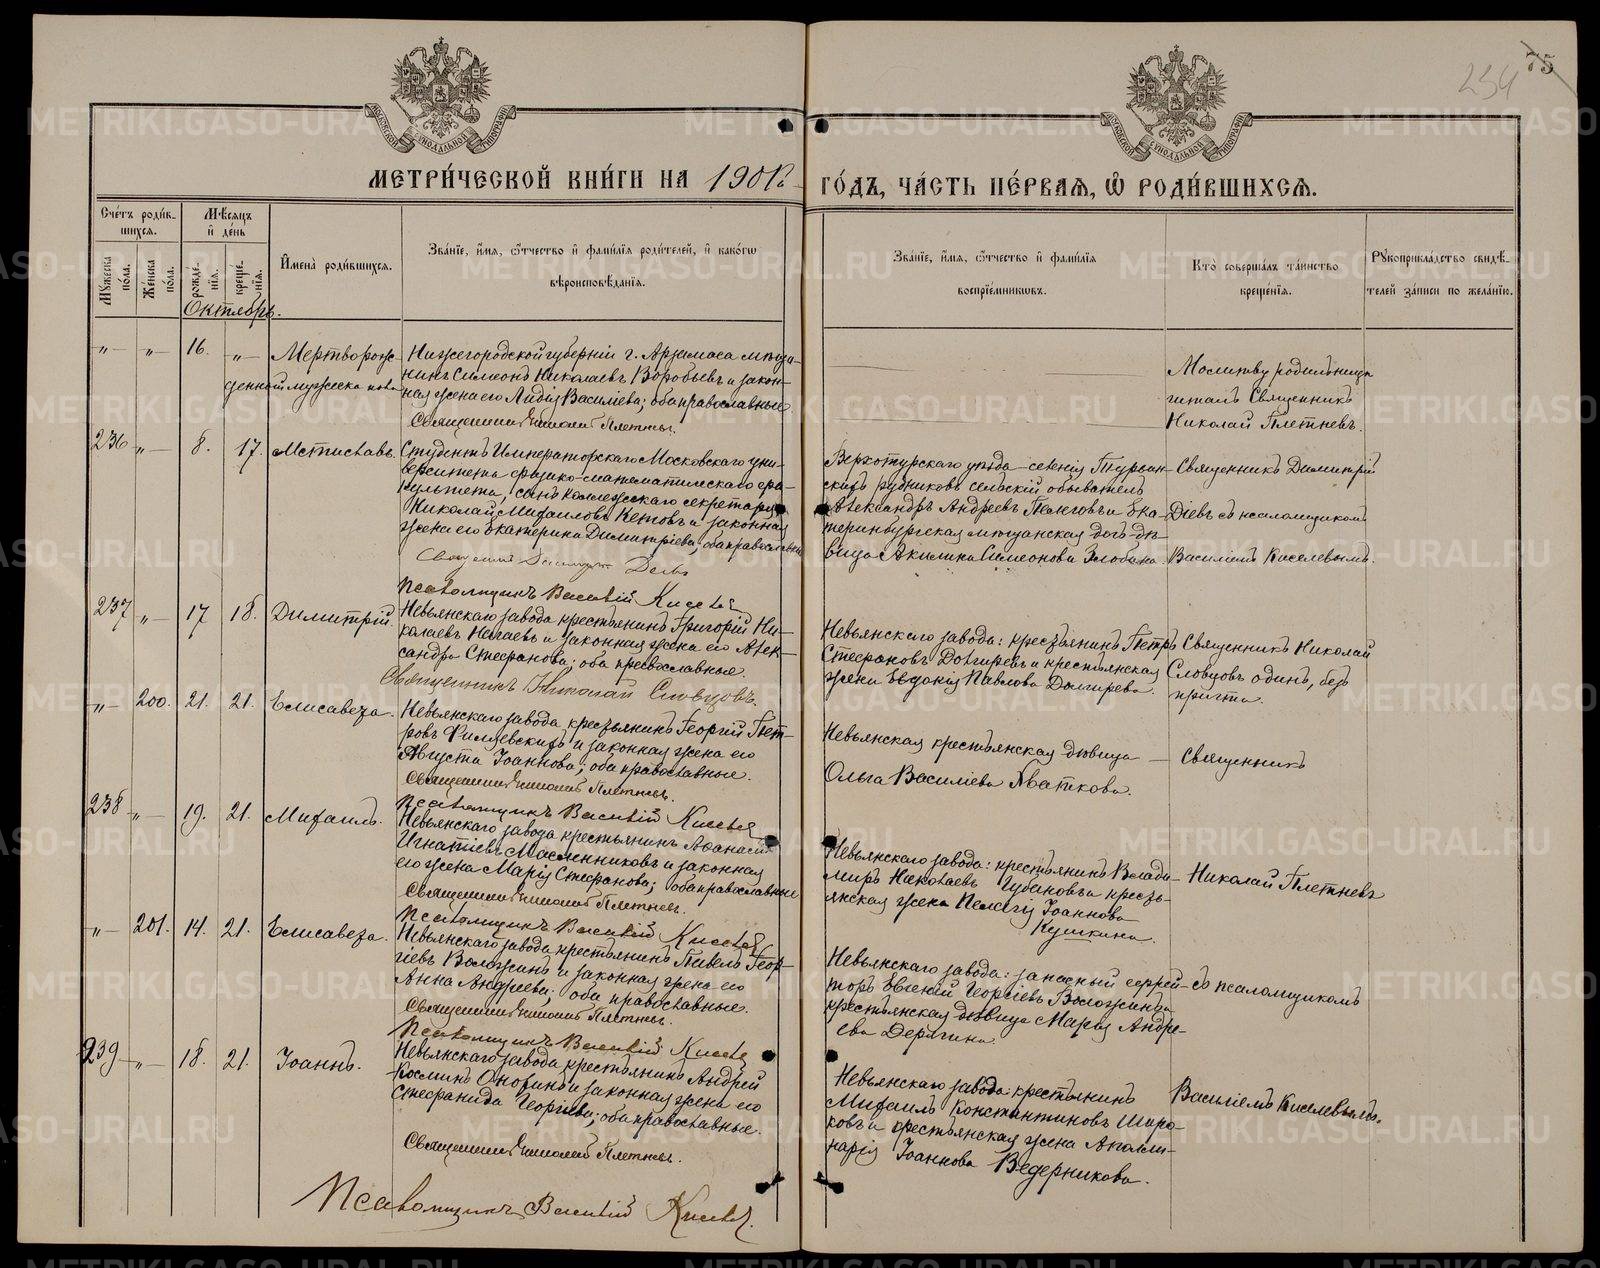 234 75
МЕТРИ́ЧЕСКОЙ КНИ́ГИ НА 1901й ГО́ДЪ, ЧА́СТЬ ПЕ́РВАѦ, Ѽ РОДИ́ВШИХСѦ.
МОСКОВСКОЙ СѴНОДАЛЬНОЙ ТИПОГРАФІИ
МОСКОВСКОЙ СѴНОДАЛЬНОЙ ТИПОГРАФІИ
Сче́тъ роди́в-
шихсѧ.
Мꙋ́жеска по́ла.
Же́нска по́ла.
Мѣ́сѧцъ
и҆ де́нь
рожде́-
нїѧ.
креще́-
нїѧ.
И҆мена̀ роди́вшихсѧ.
Зва́нїе, и҆́мѧ, ѻ҆́тчество и҆ фами́лїѧ роди́телей, и҆ како́гѡ
вѣроисповѣ́данїѧ.
Зва́нїе, и҆́мѧ, ѻ҆́тчество и҆ фами́лїѧ
воспрїе́мникѡвъ.
Кто̀ соверша́лъ та́инство
креще́нїѧ.
Рꙋкоприкла́дство свидѣ́-
телей за́писи по жела́нїю.
Октябрь.
„ „ 16. „ Мертворож-
денный мужеска пола
Нижегородской губерніи г. Арзамаса мѣща-
нинъ Симеонъ Николаевъ Воробьевъ и закон-
ная жена его Лидія Василіева; оба православные.
Священникъ Николай Плетневъ.
Молитву родильницѣ
читалъ Священникъ
Николай Плетневъ.
236 „ 8. 17. Мстиславъ.
Студентъ Императорскаго Московскаго уни-
верситета физико-математическаго фа-
культета, сынъ коллежскаго секретаря
Николай Михаиловъ Кетовъ и законная
жена его Екатерина Димитріева; оба православные.
Священникъ Димитрій Діевъ
Псаломщикъ Василій Киселевъ
Верхотурскаго уѣзда селенія Турьин-
скихъ рудниковъ сельскій обыватель
Александръ Андреевъ Пелеговъ и Ека-
теринбургская мѣщанская дочь дѣ-
вица Акилина Симеонова Злобина.
Священникъ Димитрій
Діевъ съ псаломщикомъ
Василіемъ Киселевымъ.
237 „ 17 18. Димитрій.
Невьянскаго завода крестьянинъ Григорій Ни-
колаевъ Нагаевъ и законная жена его Алек-
сандра Стефанова; оба православные.
Священникъ Николай Словцовъ.
Невьянскаго завода: крестьянинъ Петръ
Стефановъ Долгиревъ и крестьянская
жена Евдокія Павлова Долгирева.
Священникъ Николай
Словцовъ одинъ, безъ
причта.
„ 200. 21. 21. Елисавета.
Невьянскаго завода крестьянинъ Георгій Пет-
ровъ и законная жена его
Августа Іоаннова; оба православные.
Священникъ Николай Плетневъ.
Псаломщикъ Василій Киселевъ
Невьянская крестьянская дѣвица
Ольга Василіева Хваткова.
Священникъ
238 „ 19. 21. Михаилъ.
Невьянскаго завода крестьянинъ Аѳанасій
Игнатіевъ Масленниковъ и законная
его жена Марія Стефанова; оба православные
Священникъ Николай Плетневъ.
Псаломщикъ Василій Киселевъ
Невьянскаго завода: крестьянинъ Влади-
миръ Николаевъ Губановъ и кресть-
янская жена Пелагія Іоаннова
Кушкина.
Николай Плетневъ
„ 201. 14. 21. Елисавета.
Невьянскаго завода крестьянинъ Павелъ Геор-
гіевъ Вологжинъ и законная жена его
Анна Андреева; оба православные.
Священникъ Николай Плетневъ.
Псаломщикъ Василій Киселевъ
Невьянскаго завода: запасный ефрей-
торъ Евгеній Георгіевъ Вологжинъ и
крестьянская дѣвица Марія Андре-
ева Дерягина
съ псаломщикомъ
239 „ 18. 21. Іоаннъ.
Невьянскаго завода крестьянинъ Андрей
Космичъ Онохинъ и законная жена его
Стефанида Георгіева; оба православные.
Священникъ Николай Плетневъ.
Псаломщикъ Василій Киселевъ.
Невьянскаго завода: крестьянинъ
Михаилъ Константиновъ Широ-
ковъ и крестьянская жена Аполли-
нарія Іоаннова Ведерникова.
Василіемъ Киселевымъ.
METRIKI.GASO-URAL.RU